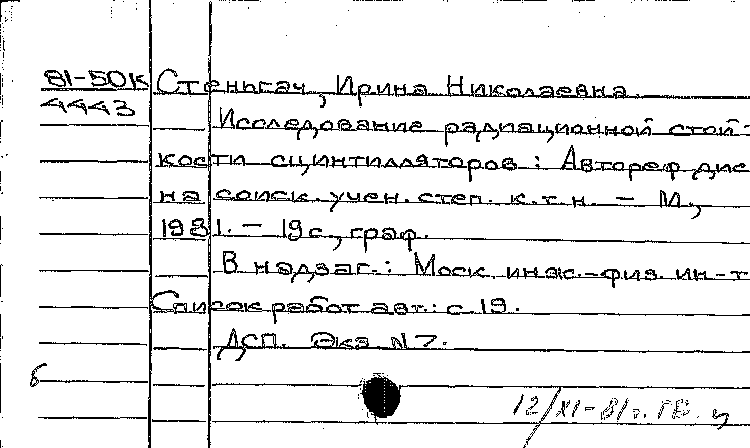 81-50К Стеньгач, Ирина Николаевна.
4443
Исследование радиационной стой-
кости сцинтилляторов : Автореф. дис.
на соиск. учен. степ. к.т.н. — М.,
1981. — 19 с., граф.
В надзаг.: Моск. инж.-физ. ин-т
Список работ авт.: с. 19.
ДСП. Экз. N 7.
б
12/XI-81г. ГВ.